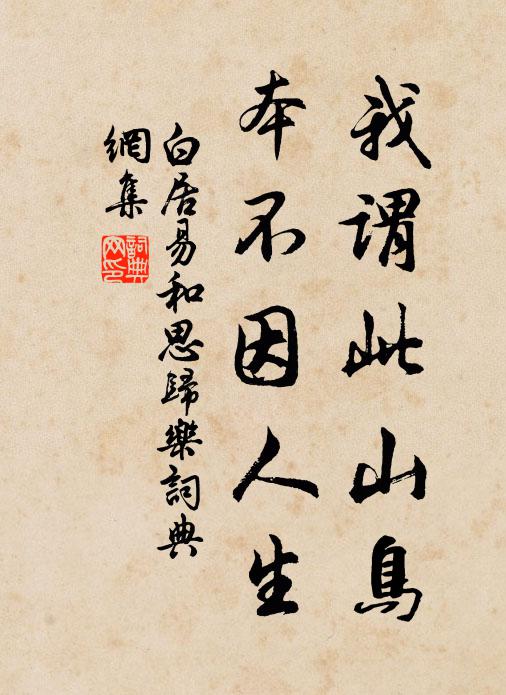 我謂此山鳥
本不因人生
白居易和思歸樂詞典
網集
詞典
网印